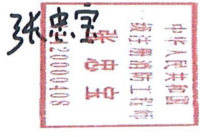 张忠宝
中华人民共和国
一级注册消防工程师
张忠宝
20000408